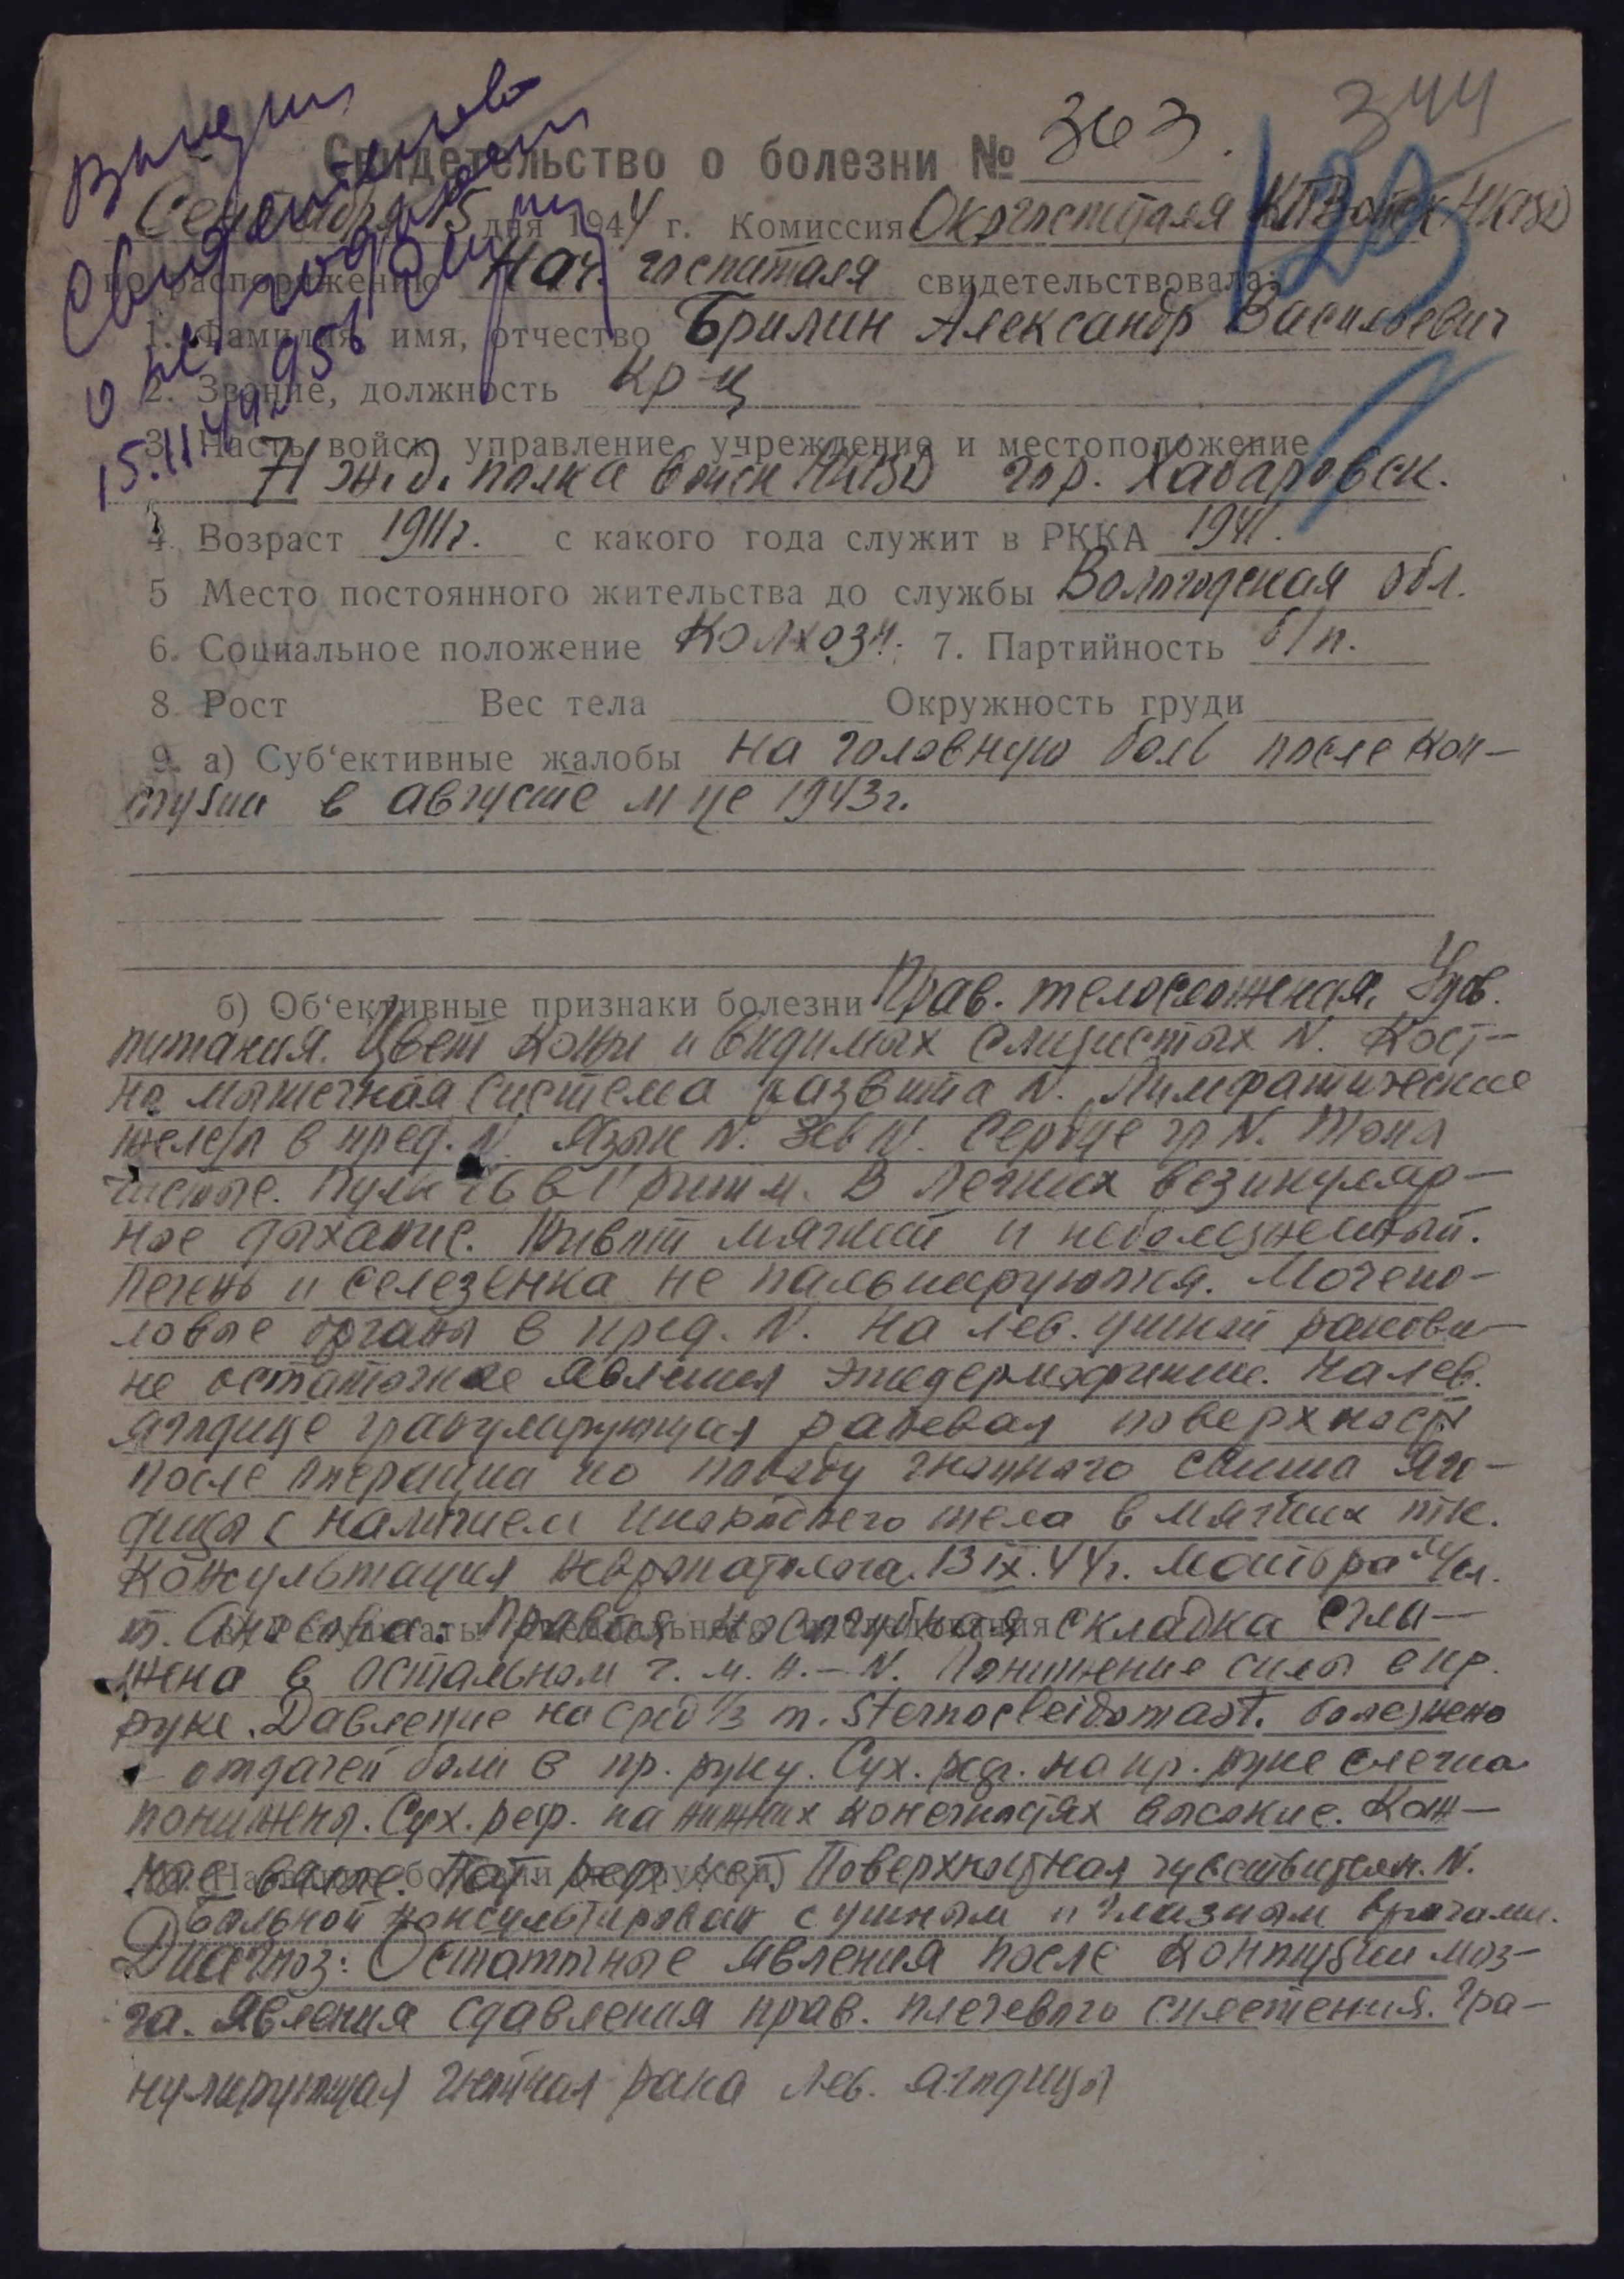 344
Свидетельство о болезни № 363.
123
Сентября 15 дня 1944 г. Комиссия Окргоспиталя ПВойск НКВД
по распоряжению Нач. госпиталя свидетельствовала:
1. Фамилия, имя, отчество Брилин Александр Васильевич
2. Звание, должность кр-ц
3. Часть войск, управление, учреждение и местоположение
71 ж.д. полка войск НКВД гор. Хабаровск.
4. Возраст 1911г. с какого года служит в РККА 1941.
5 Место постоянного жительства до службы Вологодская обл.
6. Социальное положение Колхозн. 7. Партийность б/п.
8. Рост Вес тела Окружность груди
9. а) Суб‘ективные жалобы на головную боль после кон-
тузии в августе м це 1943г.
б) Об‘ективные признаки болезни Прав. телосложения, Удов.
питания. Цвет кожи и видимых слизистых N. Кост-
но мышечная система развита N. Лимфатические
железы в пред. N. Язык N. Зев N. Сердце гр N. Тоны
чистые. Пульс 76 в 1' ритм. В легких везикуляр-
ное дыхание. Живот мягкий и неболезненный.
Печень и селезенка не пальпируются. Мочепо-
ловые органы в пред. N. На лев. ушной ракови-
не остаточные явления эпидермофитии. На лев.
ягодице гранулирующая раневая поверхность
после операции по поводу гнойного свища яго-
дицы с наличием инородного тела в мягких тк.
Консультация невропатолога. 13 IX. 44г. Майора м/сл.
в) Результаты специального исследования
т. : Правая носогубная складка сгла-
жена в остальном ч. м. н. - N. Понижение силы в пр.
руке. Давление на сред 1/3 m. sternocleidomast. болезнено
с отдачей боли в пр. руку. Сух. реф. на пр. руке слегка
понижены. Сух. реф. на нижних конечностях высокие. Кож-
Название болезни (на русском)
ные вялые. Пат. реф. нет. Поверхностная чувствительн. N.
Больной консультирован с ушным и глазным врачами.
Диагноз: Остаточные явления после контузии моз-
га. Явления сдавления прав. плечевого сплетения. Гра-
нулирующая гнойная рана лев. ягодицы
Выдан
Свидетельство
о
15.11.44г.